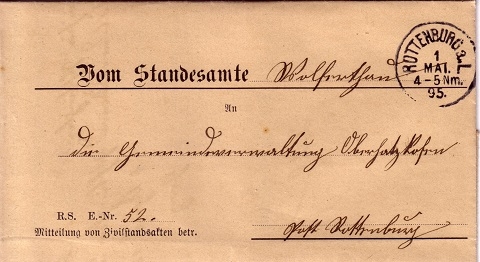 ROTTENBURG a. L.
1
MAI.
4-5 Nm.
95.
Vom Standesamte Wolferthau
An
die Gemeindeverwaltung Oberhatzkofen
R.S. E.-Nr. 52.
Mitteilung von Zivilstandsakten betr.
Post Rottenburg